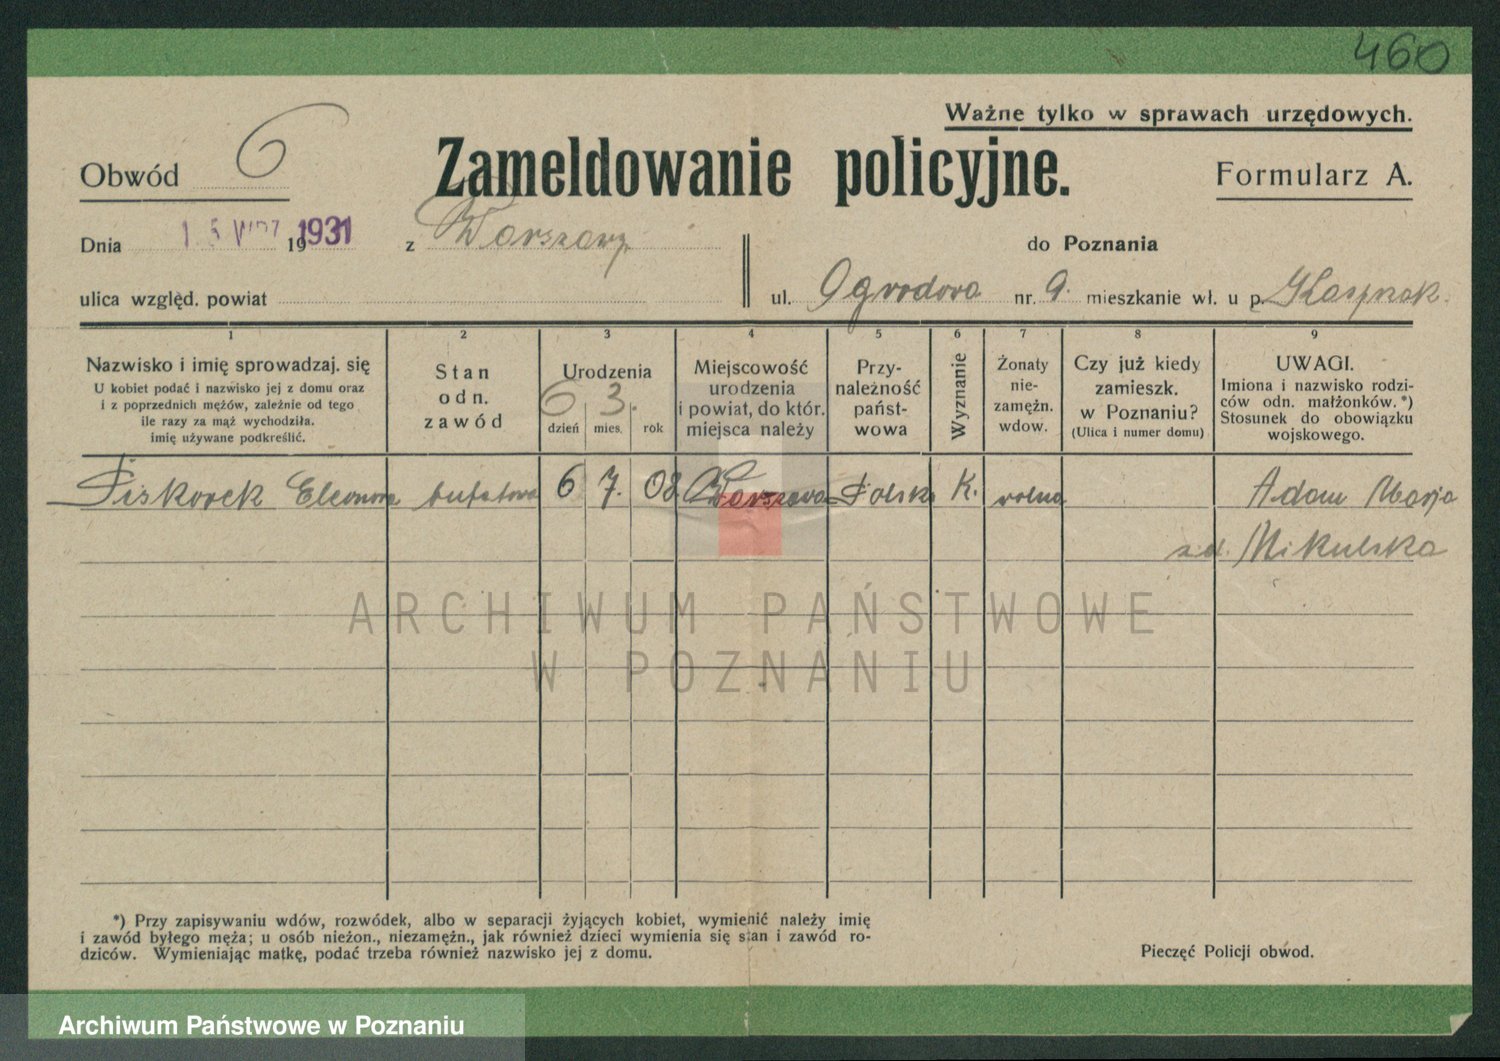 460
Ważne tylko w sprawach urzędowych.
Obwód 6
Zameldowanie policyjne.
Formularz A.
Dnia 15 WRZ 1931 z Warszawy
do Poznania
ulica względ. powiat
ul. Ogrodowa nr. 9. mieszkanie wł. u p.
1 2 3 4 5 6 7 8 9
Nazwisko i imię sprowadzaj. się
U kobiet podać i nazwisko jej z domu oraz
i z poprzednich mężów, zależnie od tego
ile razy za mąż wychodziła.
imię używane podkreślić.
Stan
odn.
zawód
Urodzenia
6 3.
dzień mies. rok
Miejscowość
urodzenia
i powiat, do któr.
miejsca należy
Przy-
należność
państ-
wowa
Wyznanie
Żonaty
nie-
zamężn.
wdow.
Czy już kiedy
zamieszk.
w Poznaniu?
(Ulica i numer domu)
UWAGI.
Imiona i nazwisko rodzi-
ców odn. małżonków.*)
Stosunek do obowiązku
wojskowego.
Piskorek Eleonora bufetowa 6 7. 08 Warszawa Polsk. K. wolna Adam Marja
zd. Mikulska
ARCHIWUM PAŃSTWOWE
W POZNANIU
*) Przy zapisywaniu wdów, rozwódek, albo w separacji żyjących kobiet, wymienić należy imię
i zawód byłego męża; u osób nieżon., niezamężn., jak również dzieci wymienia się stan i zawód ro-
dziców. Wymieniając matkę, podać trzeba również nazwisko jej z domu.
Pieczęć Policji obwod.
Archiwum Państwowe w Poznaniu